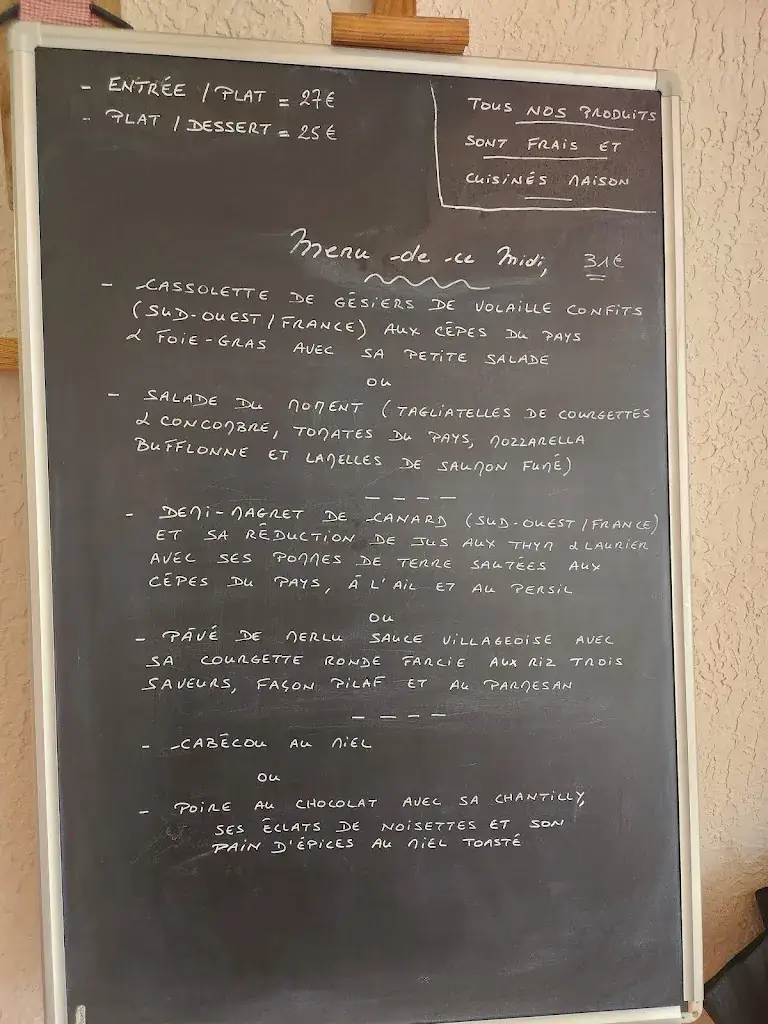 - ENTRÉE / PLAT = 27€
- PLAT / DESSERT = 25€
TOUS NOS PRODUITS
SONT FRAIS ET
CUISINÉS MAISON
Menu de ce Midi, 31€
- CASSOLETTE DE GÉSIERS DE VOLAILLE CONFITS
(SUD-OUEST / FRANCE) AUX CÈPES DU PAYS
& FOIE-GRAS AVEC SA PETITE SALADE
OU
- SALADE DU MOMENT (TAGLIATELLES DE COURGETTES
& CONCOMBRE, TOMATES DU PAYS, MOZZARELLA
BUFFLONNE ET LAMELLES DE SAUMON FUMÉ)
- - - -
- DEMI-MAGRET DE CANARD (SUD-OUEST / FRANCE)
ET SA RÉDUCTION DE JUS AUX THYM & LAURIER
AVEC SES POMMES DE TERRE SAUTÉES AUX
CÈPES DU PAYS, À L'AIL ET AU PERSIL
OU
- PAVÉ DE MERLU SAUCE VILLAGEOISE AVEC
SA COURGETTE RONDE FARCIE AUX RIZ TROIS
SAVEURS, FAÇON PILAF ET AU PARMESAN
- - - -
- CABÉCOU AU MIEL
OU
- POIRE AU CHOCOLAT AVEC SA CHANTILLY,
SES ÉCLATS DE NOISETTES ET SON
PAIN D'ÉPICES AU MIEL TOASTÉ